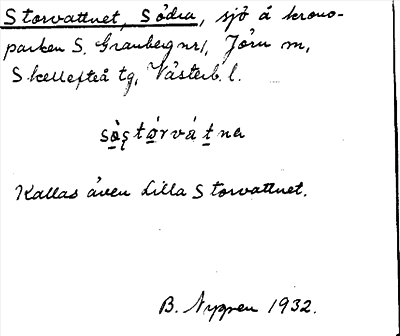 Storvattnet, Södra, sjö å krono-
parken S. Granberg nr 1, Jörn m,
Skellefteå tg, Västerb. l.
sò̱s̨tó̱rváṯna
Kallas även Lilla Storvattnet.
B. Nygren 1932.